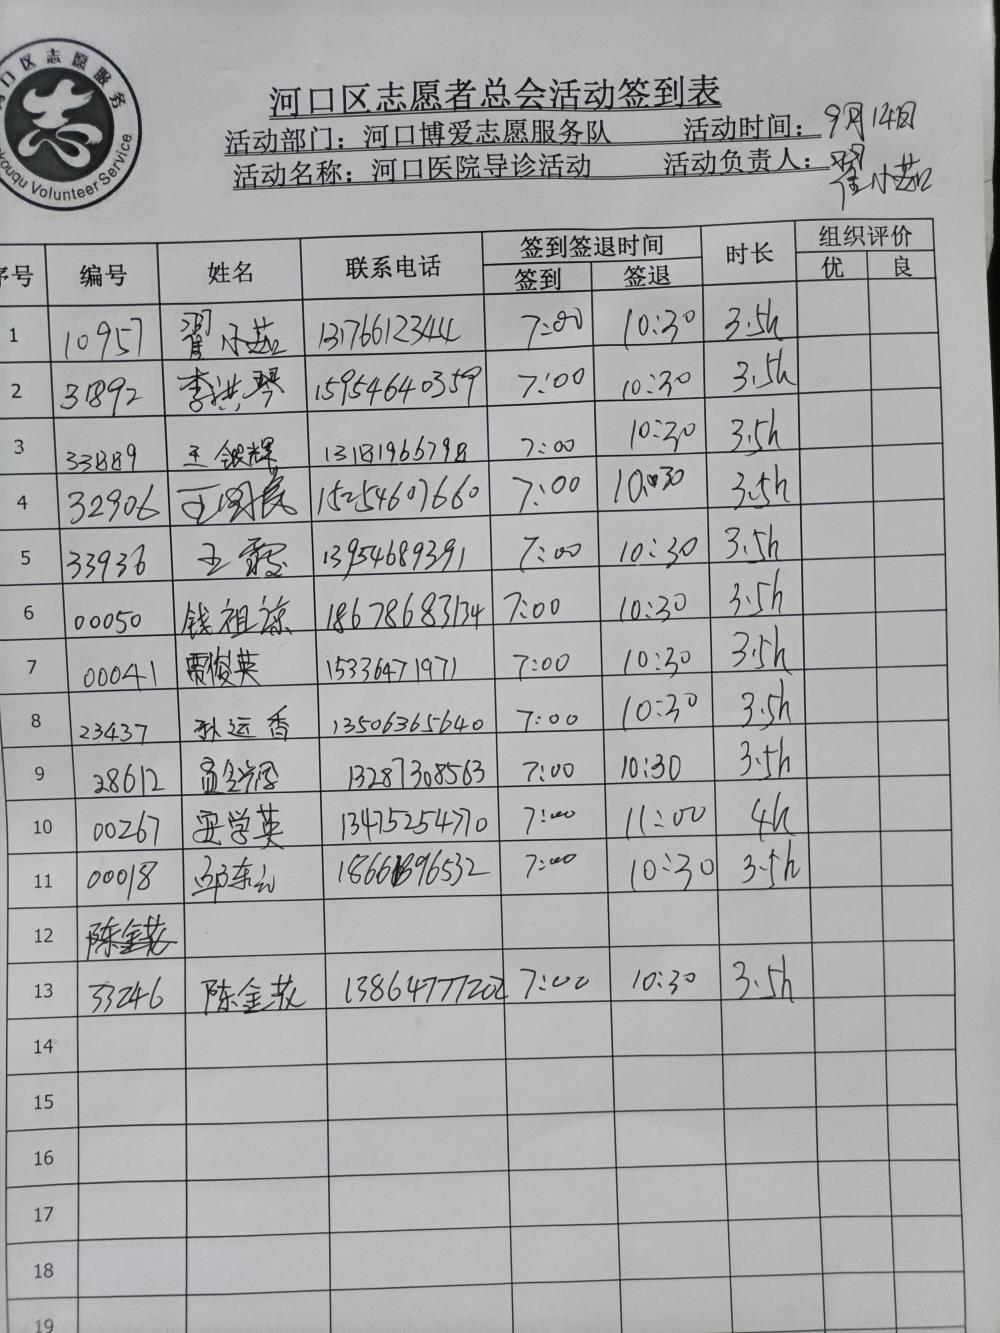 河口区志愿服务
Hekouqu Volunteer Service
河口区志愿者总会活动签到表
活动部门：河口博爱志愿服务队 活动时间：9月14日
活动名称：河口医院导诊活动 活动负责人：翟小茹
序号 编号 姓名 联系电话 签到签退时间 时长 组织评价
签到 签退 优 良
1 10957 翟小茹 13766123444 7:00 10:30 3.5h
2 31892 李洪琴 15954640359 7:00 10:30 3.5h
3 33889 王银辉 13181965798 7:00 10:30 3.5h
4 32906 王国民 15254607660 7:00 10:30 3.5h
5 33936 王霞 13954689391 7:00 10:30 3.5h
6 00050 钱祖谅 18678683134 7:00 10:30 3.5h
7 00041 贾俊英 15336471971 7:00 10:30 3.5h
8 23437 孙运香 13506365640 7:00 10:30 3.5h
9 28612 13287308563 7:00 10:30 3.5h
10 00267 安学英 13475254770 7:00 11:00 4h
11 00018 邱东云 18661896532 7:00 10:30 3.5h
12 陈金花
13 33246 陈金花 13864777202 7:00 10:30 3.5h
14
15
16
17
18
19